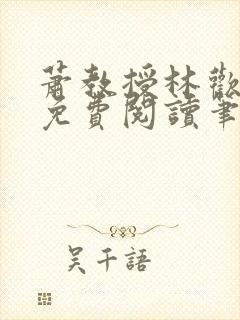 蕭教授林歡
免費閱讀筆
吴千語